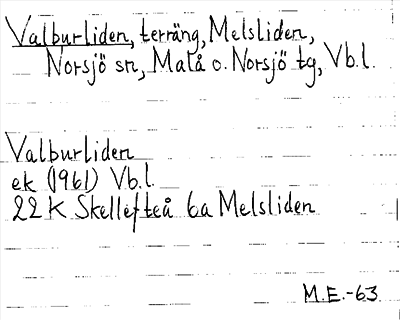 Valburliden, terräng, Melsliden,
Norsjö sn, Malå o. Norsjö tg, Vb.l.
Valburliden
ek (1961) Vb.l.
22 K Skellefteå 6a Melsliden
M.E.-63